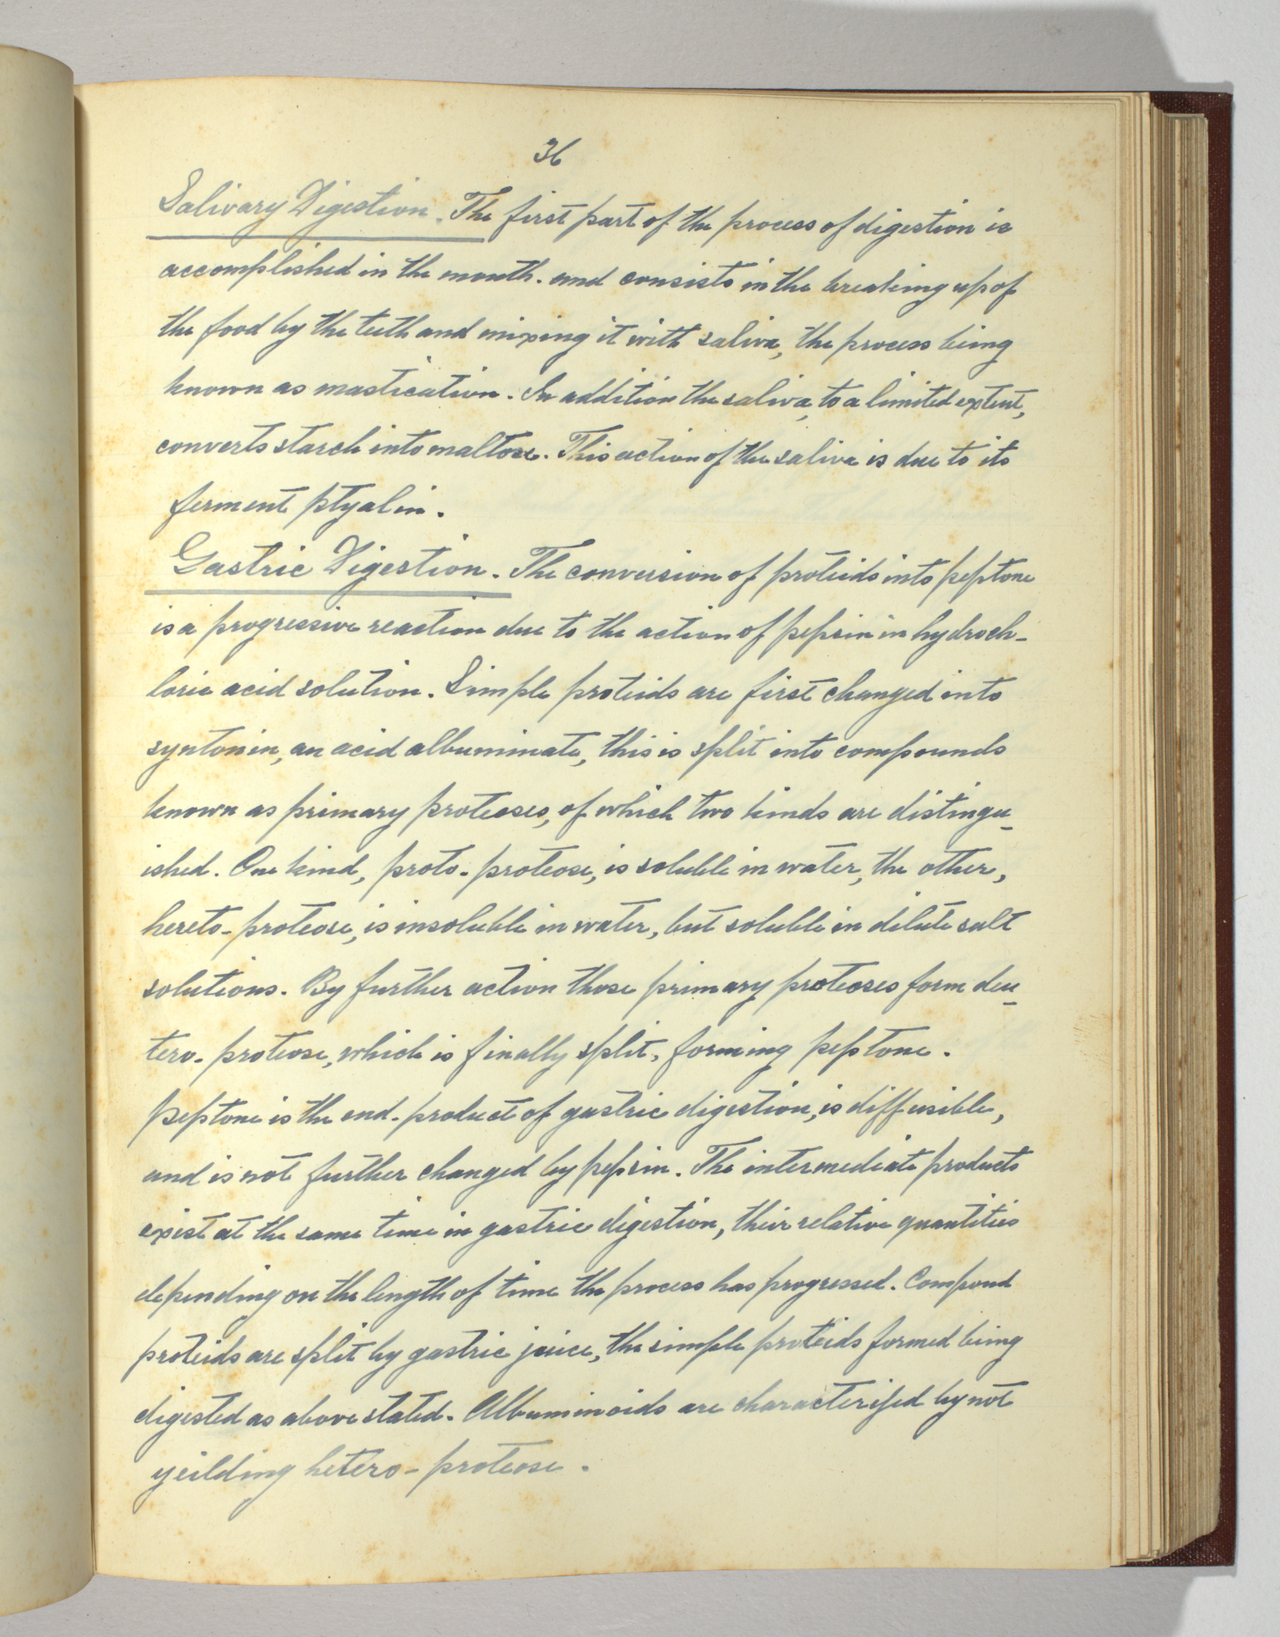 36
Salivary Digestion. The first part of the process of digestion is
accomplished in the mouth. and consists in the breaking up of
the food by the teeth and mixing it with saliva, the process being
known as mastication. In addition the saliva, to a limited extent,
converts starch into maltose. This action of the saliva is due to its
ferment ptyalin.
Gastric Digestion. The conversion of proteids into peptone
is a progressive reaction due to the action of pepsin in hydroch-
loric acid solution. Simple proteids are first changed into
syntonin, an acid albuminate, this is split into compounds
known as primary proteoses, of which two kinds are distingu-
ished. One kind, proto-proteose, is soluble in water, the other,
hereto-proteose, is insoluble in water, but soluble in dilute salt
solutions. By further action those primary proteoses form deu-
tero-proteose, which is finally split, forming peptone.
Peptone is the end-product of gastric digestion, is diffusible,
and is not further changed by pepsin. The intermediate products
exist at the same time in gastric digestion, their relative quantities
depending on the length of time the process has progressed. Compound
proteids are split by gastric juice, the simple proteids formed being
digested as above stated. Albuminoids are characterised by not
yeilding hetero-proteose.